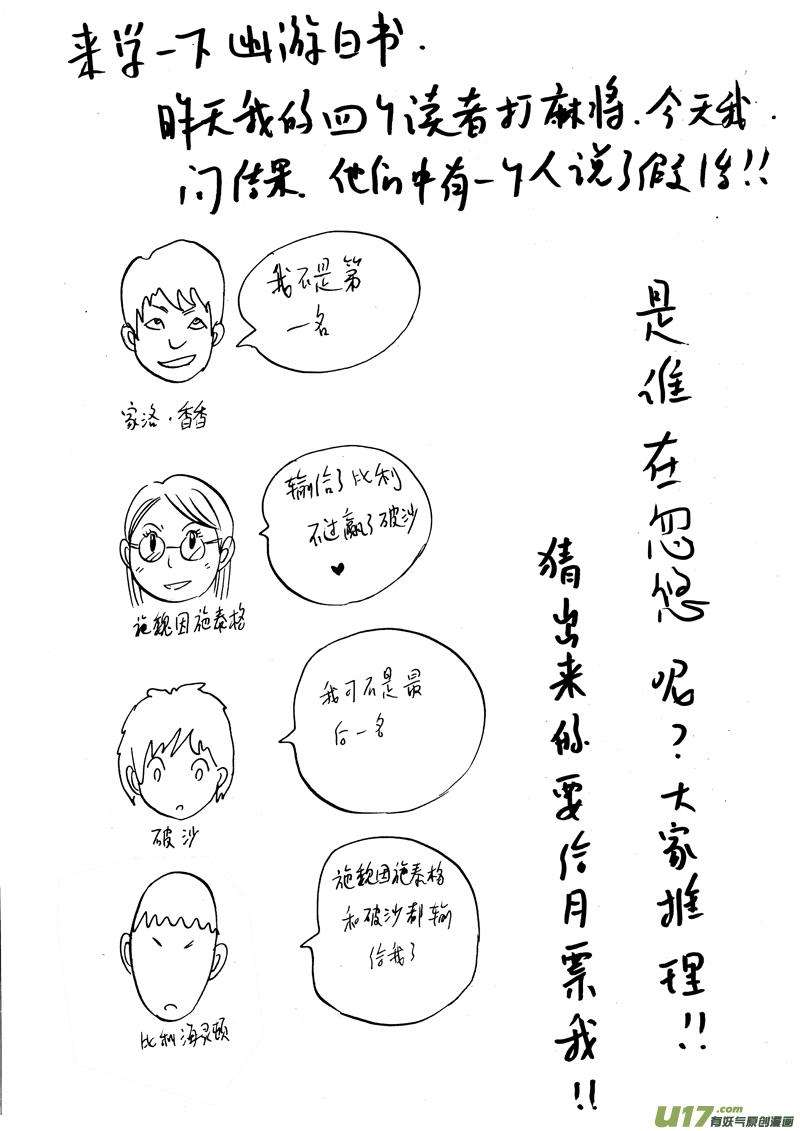 来学一下幽游白书.
昨天我的四个读者打麻将.今天我.
问结果.他们中有一个人说了假话!!
我不是第
一名
家洛.香香
输给了比利
不过赢了破沙
施魏因施泰格
我可不是最
后一名
破沙
施魏因施泰格
和破沙都输
给我了
比利海灵顿
是谁在忽悠呢?大家推理!!
猜出来的要给月票我!!
U17.com
有妖气原创漫画